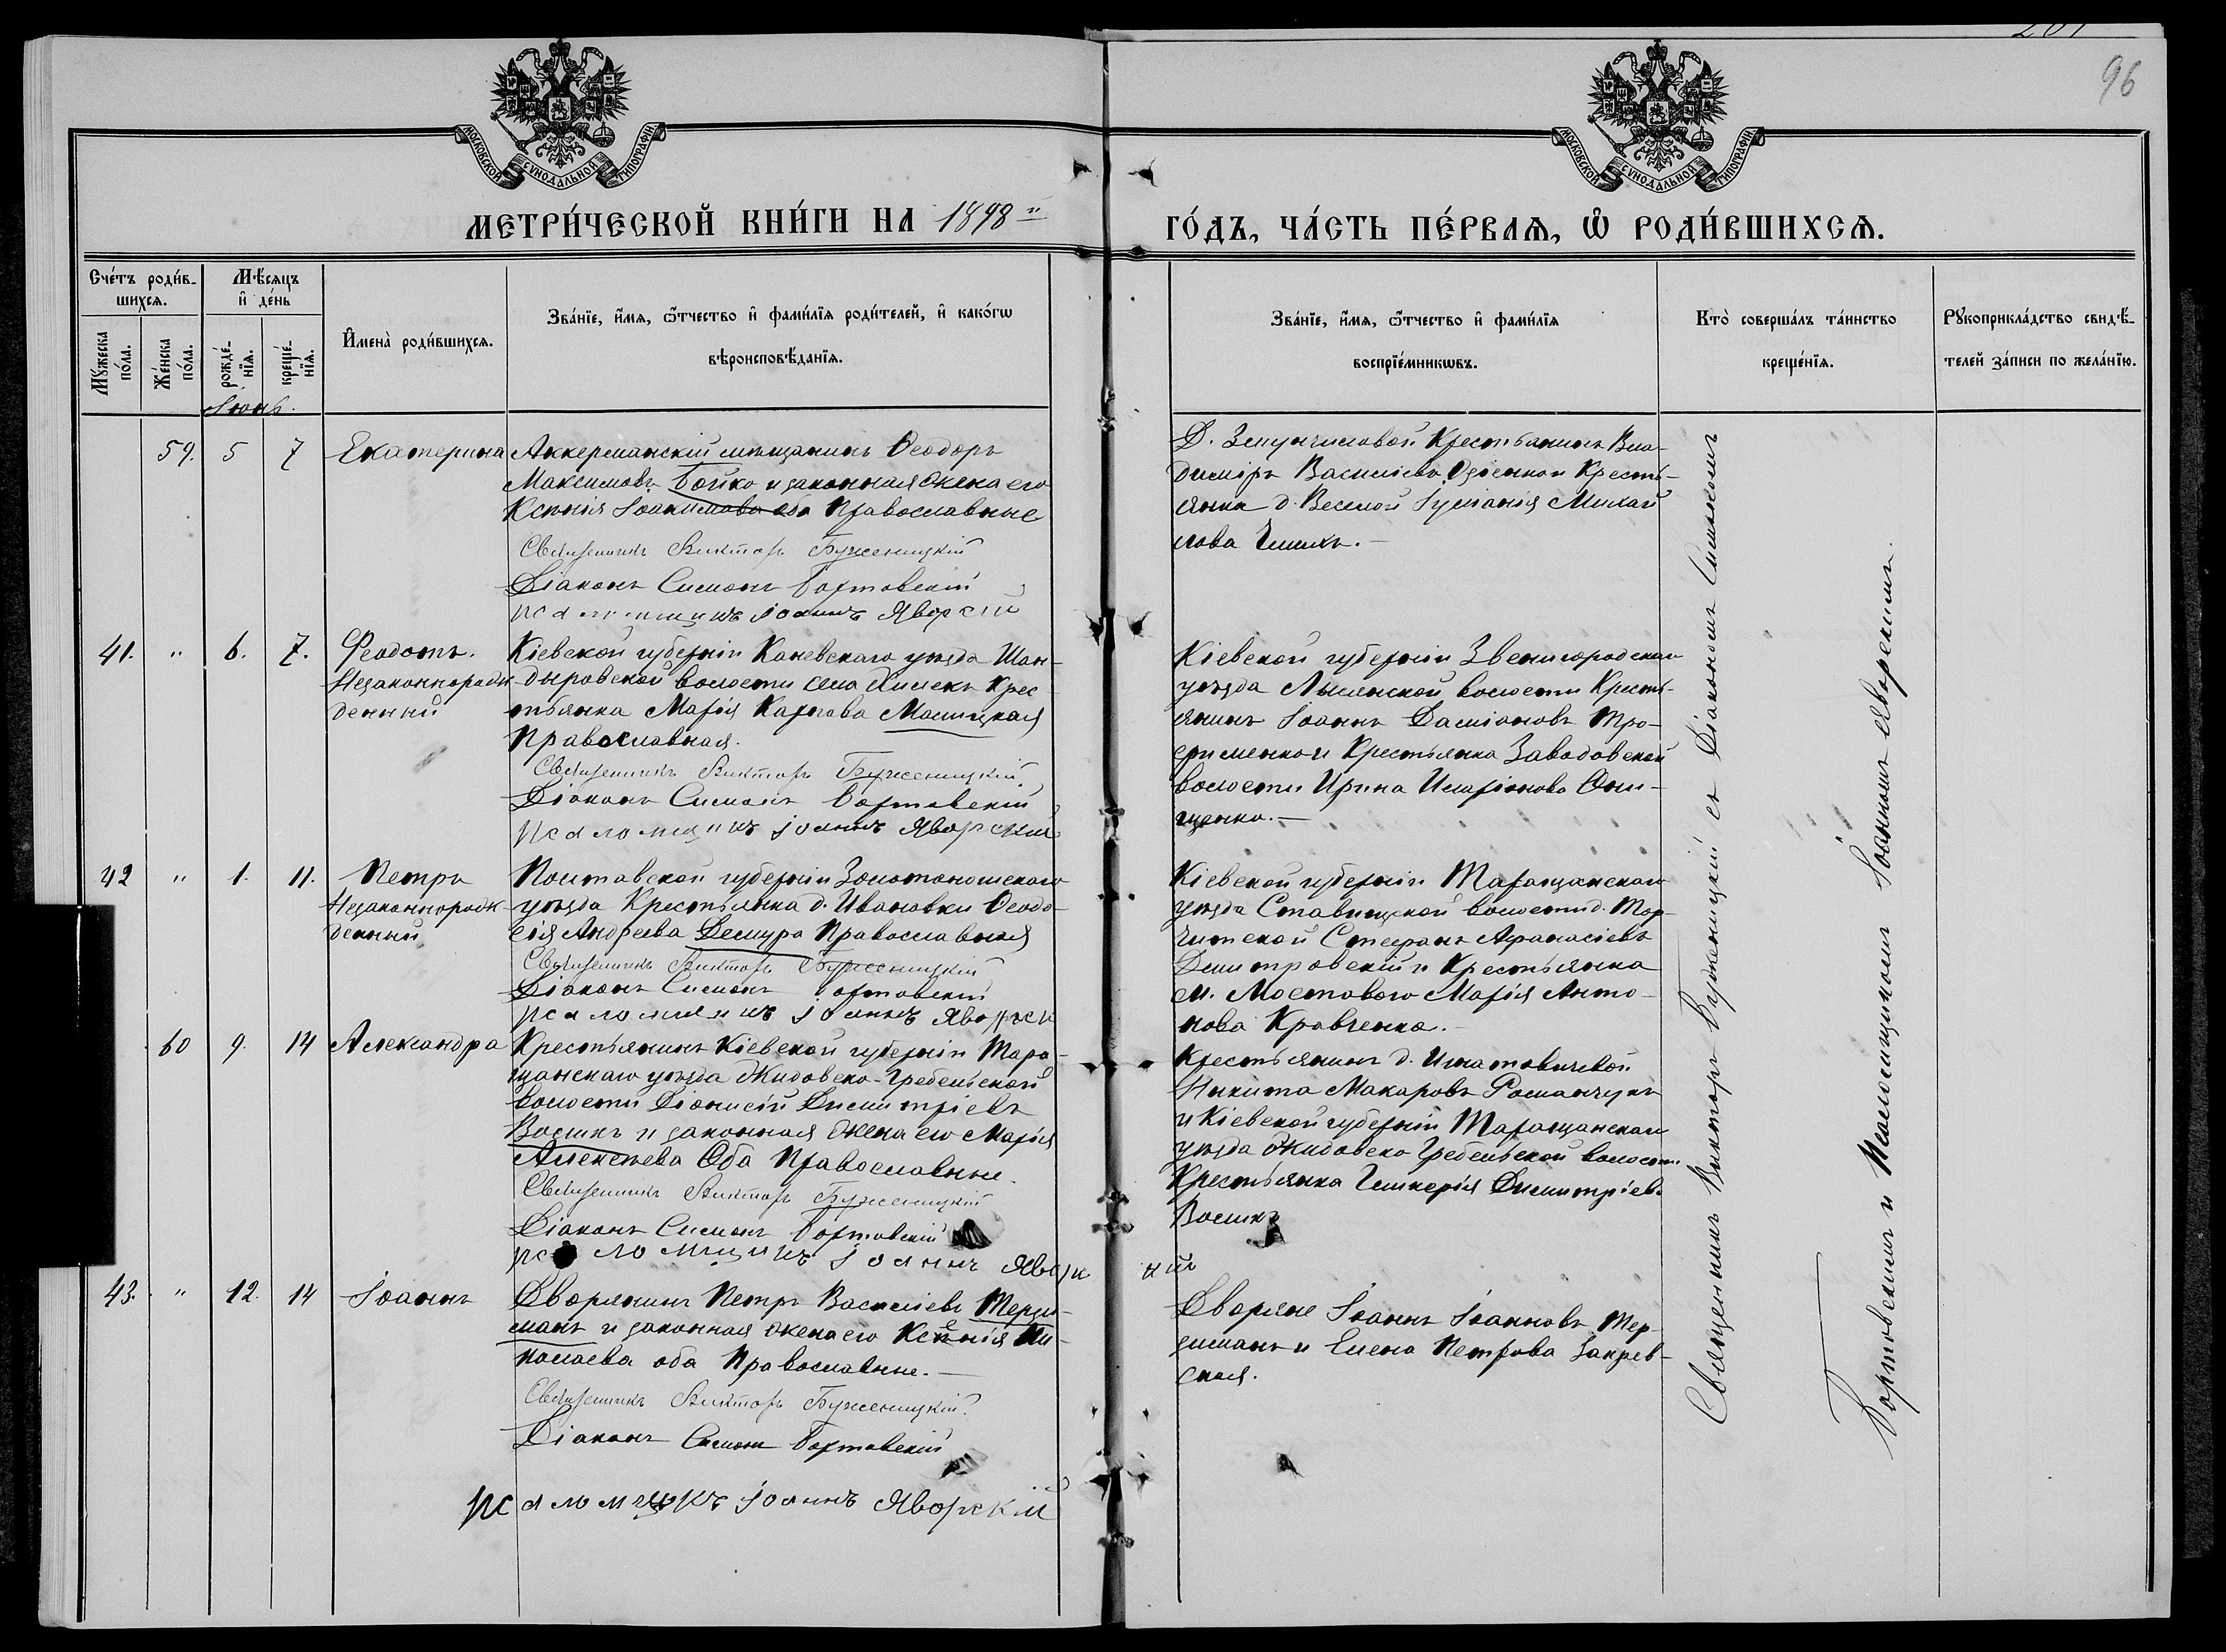 96
МОСКОВСКОЙ СУНОДАЛЬНОЙ ТИПОГРАФІИ
МОСКОВСКОЙ СУНОДАЛЬНОЙ ТИПОГРАФІИ
МЕТРИ́ЧЕСКОЙ КНИ́ГИ НА 1898 й
ГО́ДЪ, ЧА́СТЬ ПЕ́РВАѦ, Ѽ РОДИ́ВШИХСѦ.
Сче́тъ роди́в-
шихсѧ.
Мѣ́сѧцъ
и҆ де́нь
Мꙋ́жеска по́ла.
Же́нска по́ла.
рожде́-
нїѧ.
креще́-
нїѧ.
И҆мена̀ роди́вшихсѧ.
Зва́нїе, и҆́мѧ, ѻ҆́тчество и҆ фами́лїѧ роди́телей, и҆ како́гѡ
вѣроисповѣ́данїѧ.
Зва́нїе, и҆́мѧ, ѻ҆́тчество и҆ фами́лїѧ
воспрїе́мникѡвъ.
Кто̀ соверша́лъ та́инство
креще́нїѧ.
Рꙋкоприкла́дство свидѣ́-
телей за́писи по жела́нїю.
Іюнь.
59. 5 7 Екатерина
Аккерманскій мѣщанинъ Ѳеодоръ
Максимовъ Бойко и законная жена его
Ксенія оба Православные
Священникъ Викторъ Буженицкій
Діаконъ Симонъ Бортовскій
Псаломщикъ Іоаннъ Яворскій
Крестьянинъ Вла-
диміръ Васильевъ Крестъ-
янка д. Веселой Іуліанія Михай
лова
41. " 6. 7. Феодотъ.
Незаконнорож-
денный
Кіевской губерніи Каневскаго уѣзда Шан-
дыровской волости села Крес
тьянка Марія Карпова Мельницкая
Православная.
Священникъ Викторъ Буженицкій
Діаконъ Симонъ Бортовскій
Псаломщикъ Іоаннъ Яворскій
Кіевской губерніи Звенигородскаго
уѣзда Лысянской волости Кресть-
янинъ Іоаннъ Даміановъ Тро-
фименко и Крестьянка Заводовской
волости Ирина Иларіонова Они-
щенко. —
42 " 1. 11. Петръ
Незаконнорож-
денный
Полтавской губерніи Золотоношскаго
уѣзда Крестьянка д. Ивановки Ѳеодо-
сія Андреева Демура Православная
Священникъ Викторъ Буженицкій
Діаконъ Симонъ Бортовскій
Псаломщикъ Іоаннъ Яворскі
Кіевской губерніи Таращанскаго
уѣзда Ставищской волости д. Тор-
читской Стефанъ Афанасіевъ
Дмитровскій и Крестьянка
м. Мостового Марія Анто-
нова Кравченко. —
60 9. 14 Александра
Крестьянинъ Кіевской губерніи Тара-
щанскаго уѣзда Жидовско-Гребельской
волости Діонисій Димитріевъ
Восикъ и законная жена его Марія
Алексѣева Оба Православные.
Священникъ Викторъ Буженицкій
Діаконъ Симонъ Бортовскій
Псаломщикъ Іоаннъ Яворскій
Крестьянинъ д. Игнатовичевой
Никита Макаровъ Романчукъ
и Кіевской губерніи Таращанскаго
уѣзда Жидовско Гребельской волости
Крестьянка Гликерія Димитріева
Восикъ
43. " 12. 14 Іоаннъ
Дворянинъ Петръ Васильевъ Терзи-
манъ и законная жена его Ксенія Ни-
колаева оба Православные. —
Священникъ Викторъ Буженицкій.
Діаконъ Симонъ Бортовскій
Псаломщикъ Іоаннъ Яворскій
Дворяне Іоаннъ Іоанновъ Тер-
зиманъ и Елена Петрова Закрев-
ская.
Священникъ Викторъ Буженицкій съ Діакономъ Симономъ
Бортовскимъ и Псаломщикомъ Іоанномъ Яворскимъ.